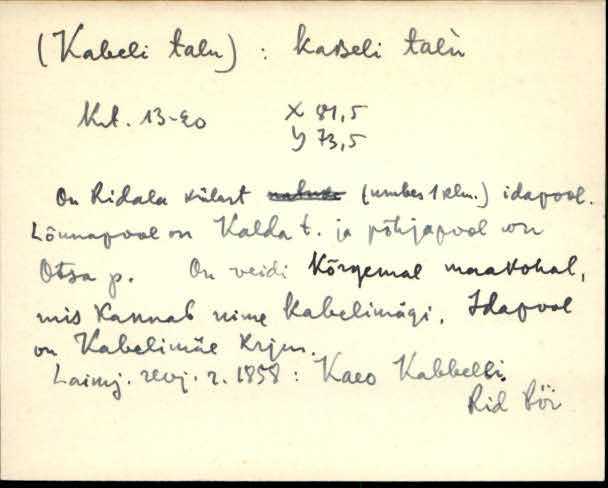 (Kabeli talu) : kaBeli talù
Krt. 13-20 X 81,5
Y 73,5
On Ridala külast (umbes 1 klm.) idapool.
Lõunapool on Kalda t. ja põhjapool on
Otsa p. On veidi kõrgemal maakohal,
mis kannab nime Kabelimägi. Idapool
on Kabelimäe krjm.
Laimj. revj. r. 1858 : Kaeo Kabbelli.
Rid Pör